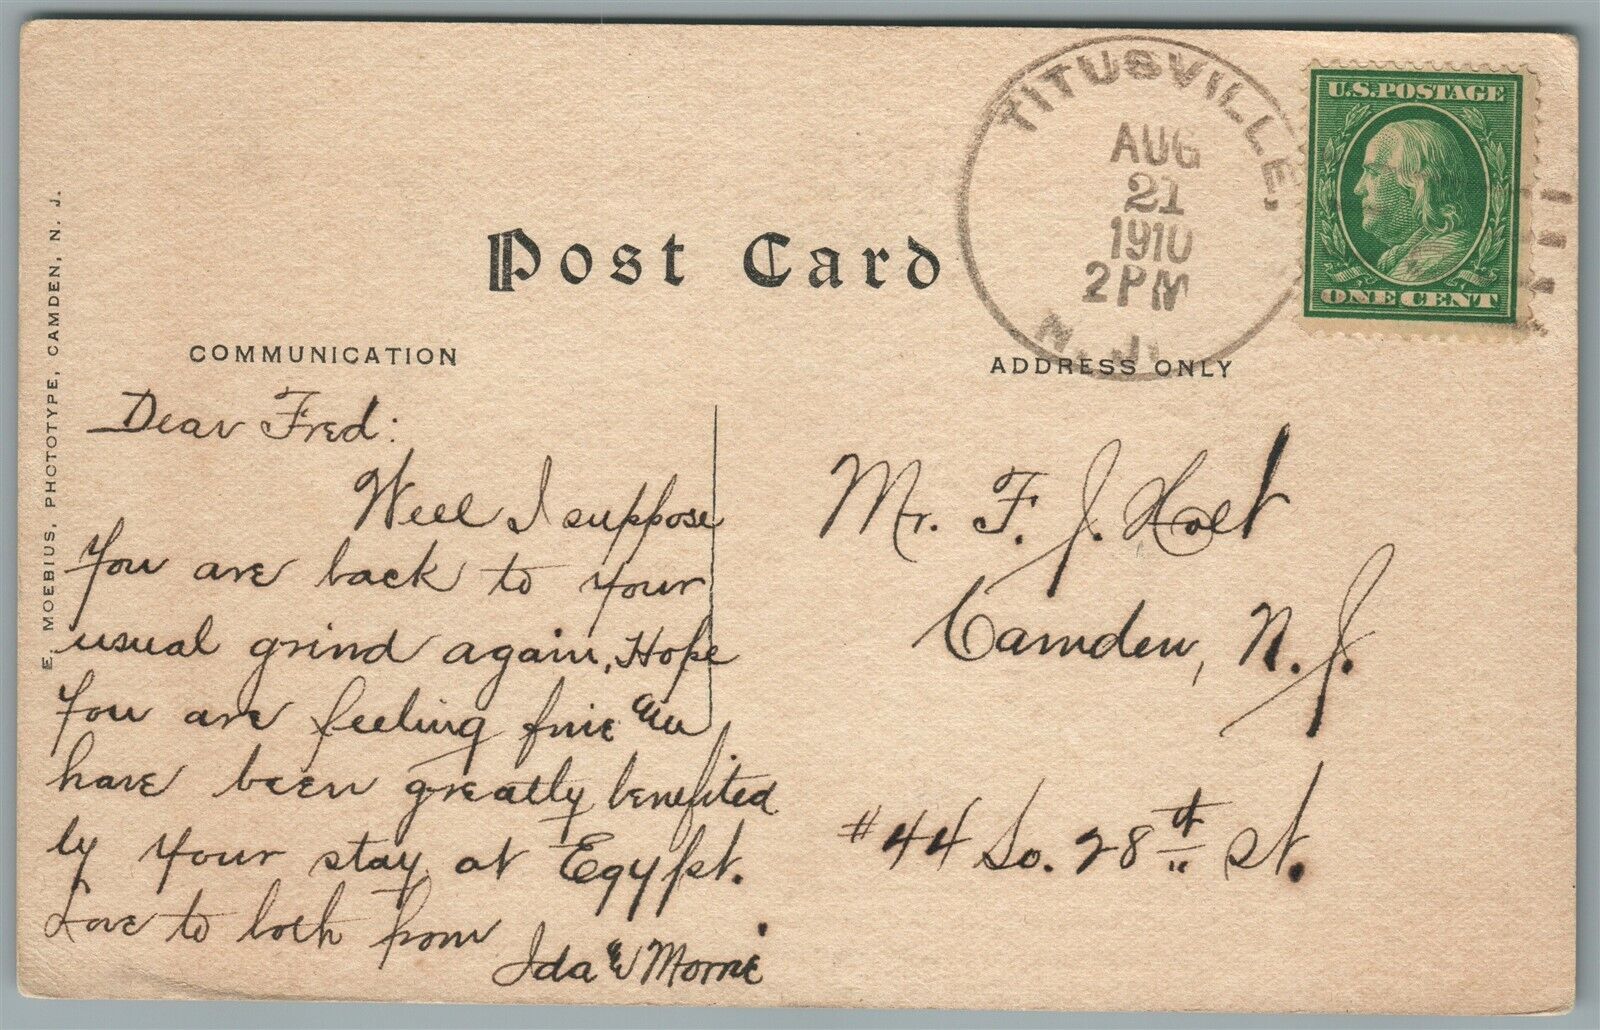 TITUSVILLE,
AUG
21
1910
2PM
N.J.
U.S.POSTAGE
ONE CENT
Post Card
COMMUNICATION
ADDRESS ONLY
E. MOEBIUS, PHOTOTYPE, CAMDEN, N. J.
Dear Fred:
Well I suppose
you are back to your
usual grind again. Hope
you are feeling fine &
have been greatly benefited
by your stay at Egypt.
Love to both from
Ida &
Mr. F. J. Holt
Camden, N. J.
#44 So. 28th St.